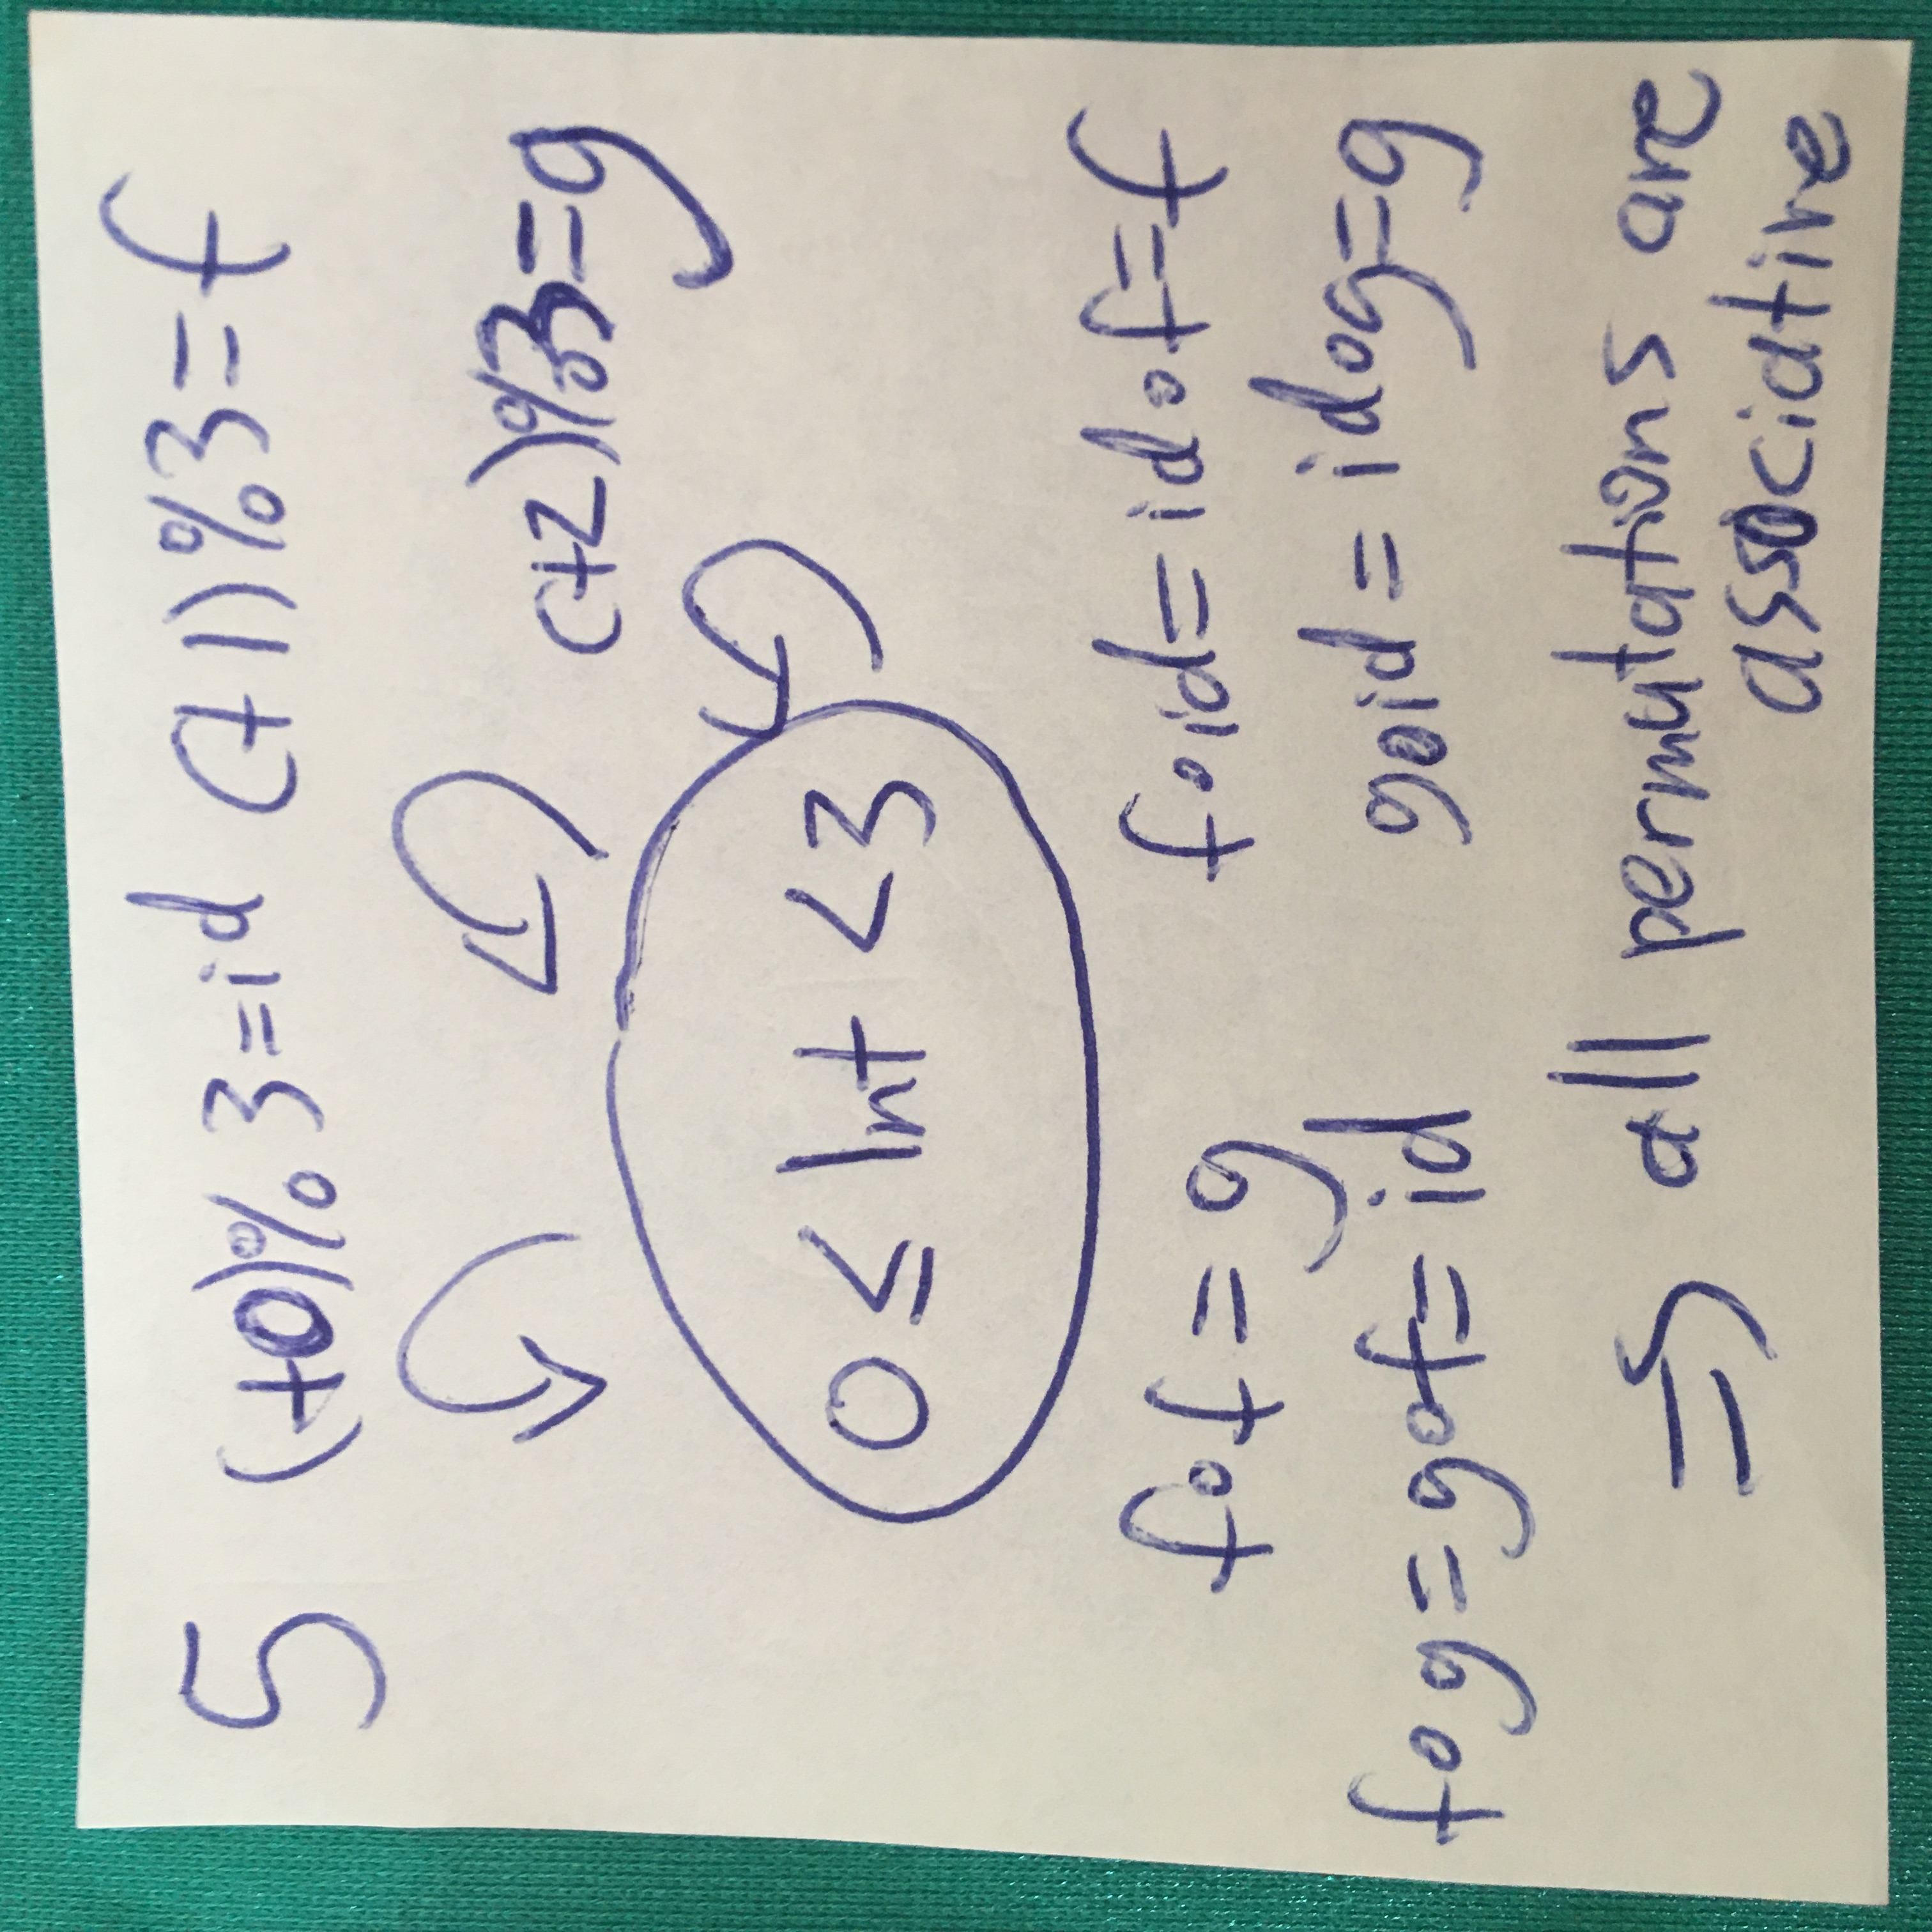 5 (+0)%3=id (+1)%3=f
(+2)%3=g
0 ≤ Int < 3
f∘f = g f∘id = id∘f = f
f∘g = g∘f = id g∘id = id∘g = g
⇒ all permutations are
associative